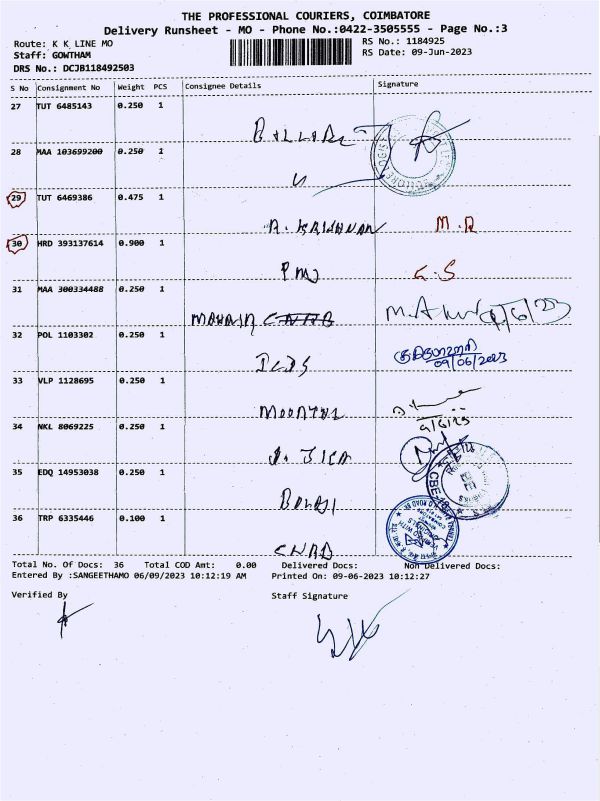 THE PROFESSIONAL COURIERS, COIMBATORE
Delivery Runsheet - MO - Phone No.:0422-3505555 - Page No.:3
Route: K K LINE MO
RS No.: 1184925
Staff: GOWTHAM
RS Date: 09-Jun-2023
DRS No.: DCJB118492503
S No Consignment No Weight PCS Consignee Details Signature
27 TUT 6485143 0.250 1
28 MAA 103699200 0.250 1
29 TUT 6469386 0.475 1
A. KRISHNAN M.R
30 HRD 393137614 0.900 1
G.S
31 MAA 300334488 0.250 1
32 POL 1103302 0.250 1
ICDS
09/06/2023
33 VLP 1128695 0.250 1
9/6/23
34 NKL 8069225 0.250 1
35 EDQ 14953038 0.250 1
BALAJI
36 TRP 6335446 0.100 1
Total No. Of Docs: 36 Total COD Amt: 0.00 Delivered Docs: Non Delivered Docs:
Entered By :SANGEETHAMO 06/09/2023 10:12:19 AM Printed On: 09-06-2023 10:12:27
Verified By Staff Signature